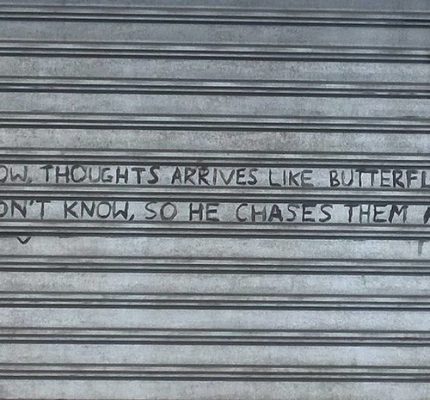 OW, THOUGHTS ARRIVES LIKE BUTTERFL
ON'T KNOW, SO HE CHASES THEM A